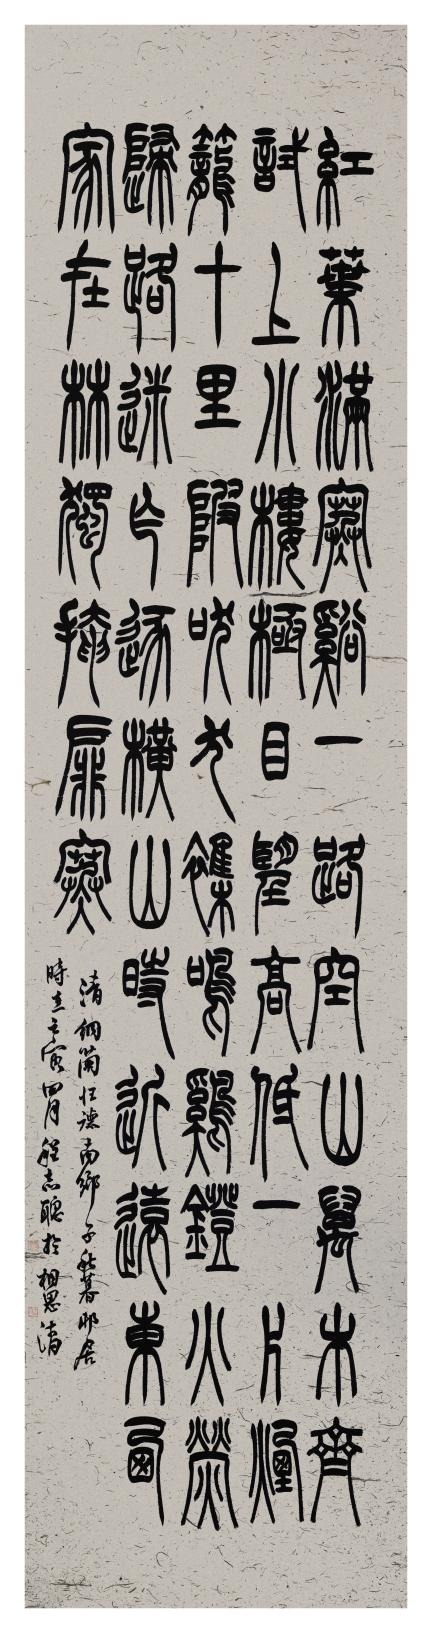 紅葉滿寒谿一路空山萬木齊
試上小樓極目望高低一片煙
籠十里陂吠犬雜鳴鷄鐙火熒
歸路迷乍逐橫山時近遠東西
家在林獨掩扉寒
清納蘭性德南鄉子秋暮邨居
時在壬寅四月程志聰於相思